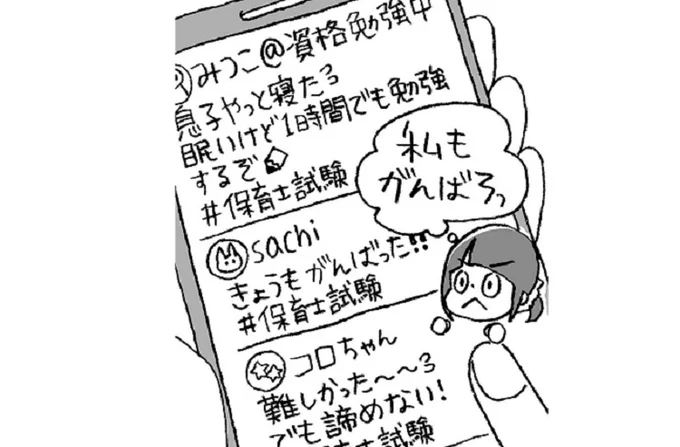 みつこ@資格勉強中
息子やっと寝たろ
眠いけど1時間でも勉強
するぞ
#保育士試験
私も
がんばろっ
sachi
きょうもがんばった!!
#保育士試験
コロちゃん
難しかった〜〜ろ
でも諦めない!
士試験